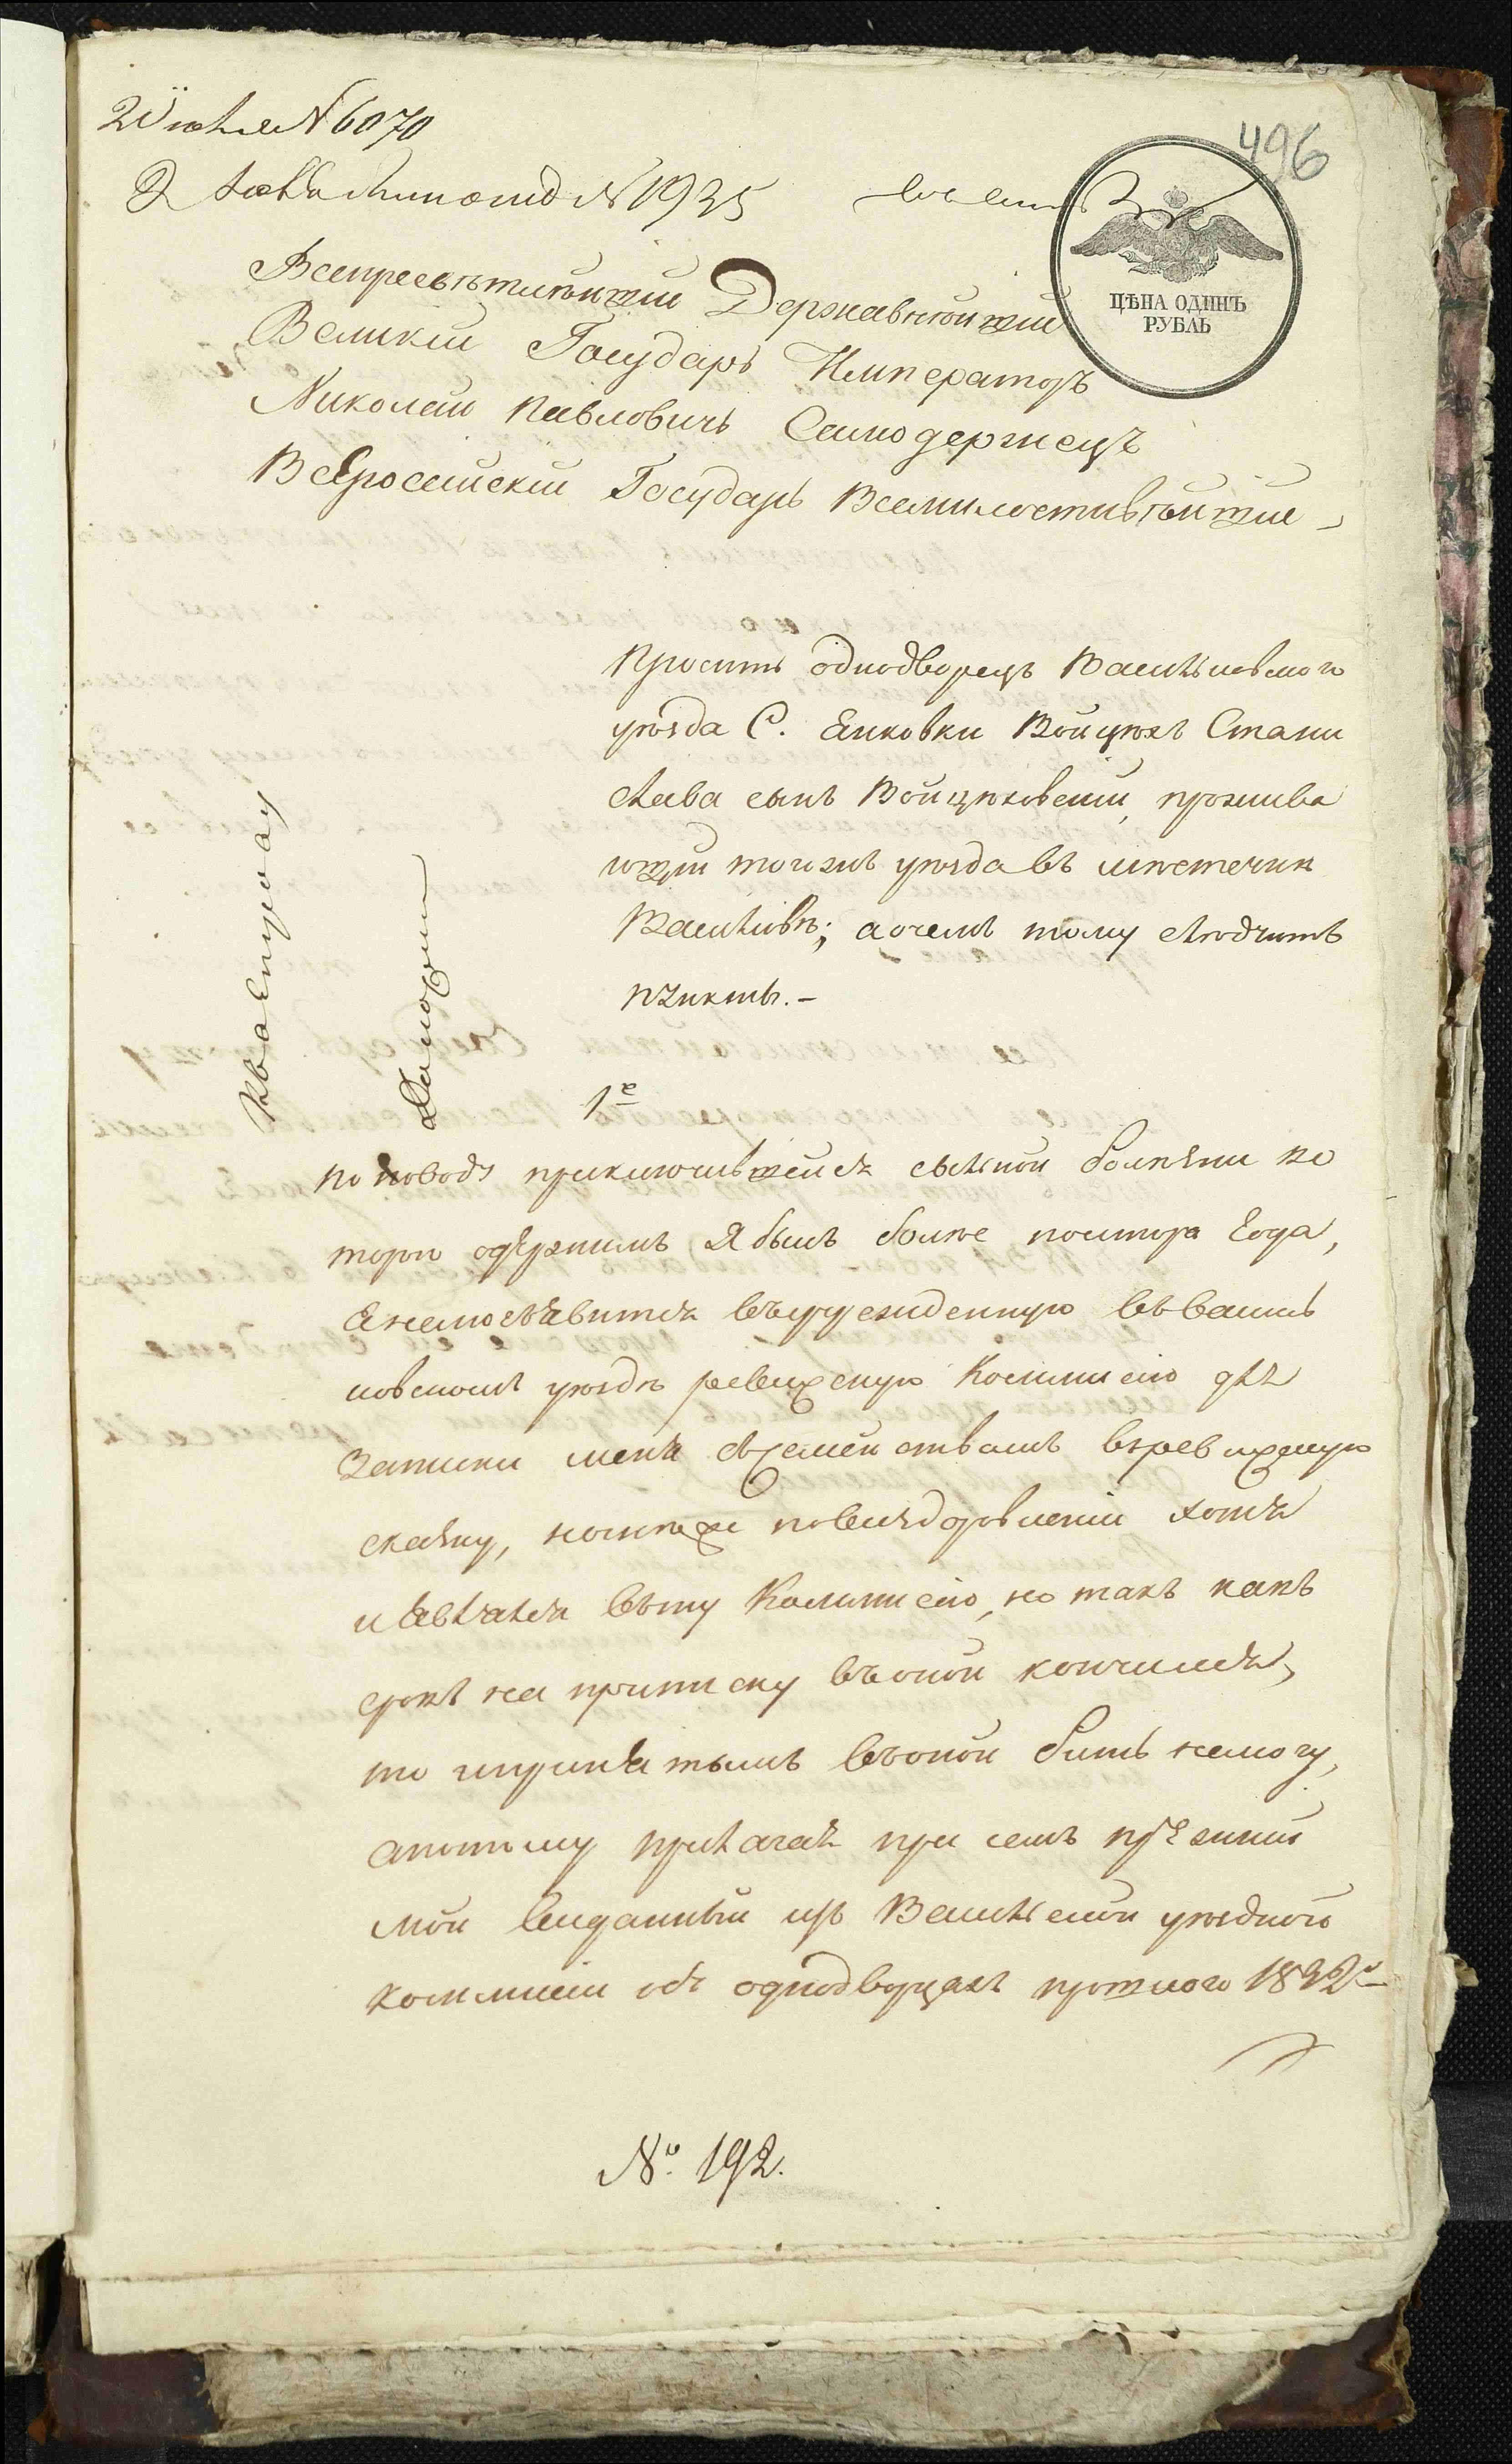 2 Июля N 6070
N 1935
496
ЦѢНА ОДИНЪ
РУБЛЬ
Всепресвѣтлѣйшій Державнѣйшій
Великій Государь Императоръ
Николай Павловичь Самодержецъ
Всеросійскій Государь Всемилостивѣйшіе
Просить однодворецъ Васильковского
уѣзда С. Янковки Войцѣхъ Стани
слава сынъ Войцѣховскій, прожива
ющій тогожъ уѣзда въ мѣстечкѣ
Васильковѣ; а очемъ тому слѣдуютъ
пункты.-
1е
по поводу приключившейся сильной болѣзни ко
торою одержимъ я былъ болѣе полтора года,
я немогъ явится въ учрежденную въ Василь
ковскомъ уѣздѣ ревизскую Коммисію для
записки меня съ семействомъ въ ревизскую
скаску, нынѣже повыздоровленіи хотя
и являлся въ ту Коммисію, но такъ какъ
срокъ на приписку въ оной кончился,
то и принятымъ въ оной быть немогу,
а потому прилагая при семъ прежній
мой выданный изъ Васильской уѣздного
коммисіи объ однодворцахъ прошлого 1832го
No. 192.